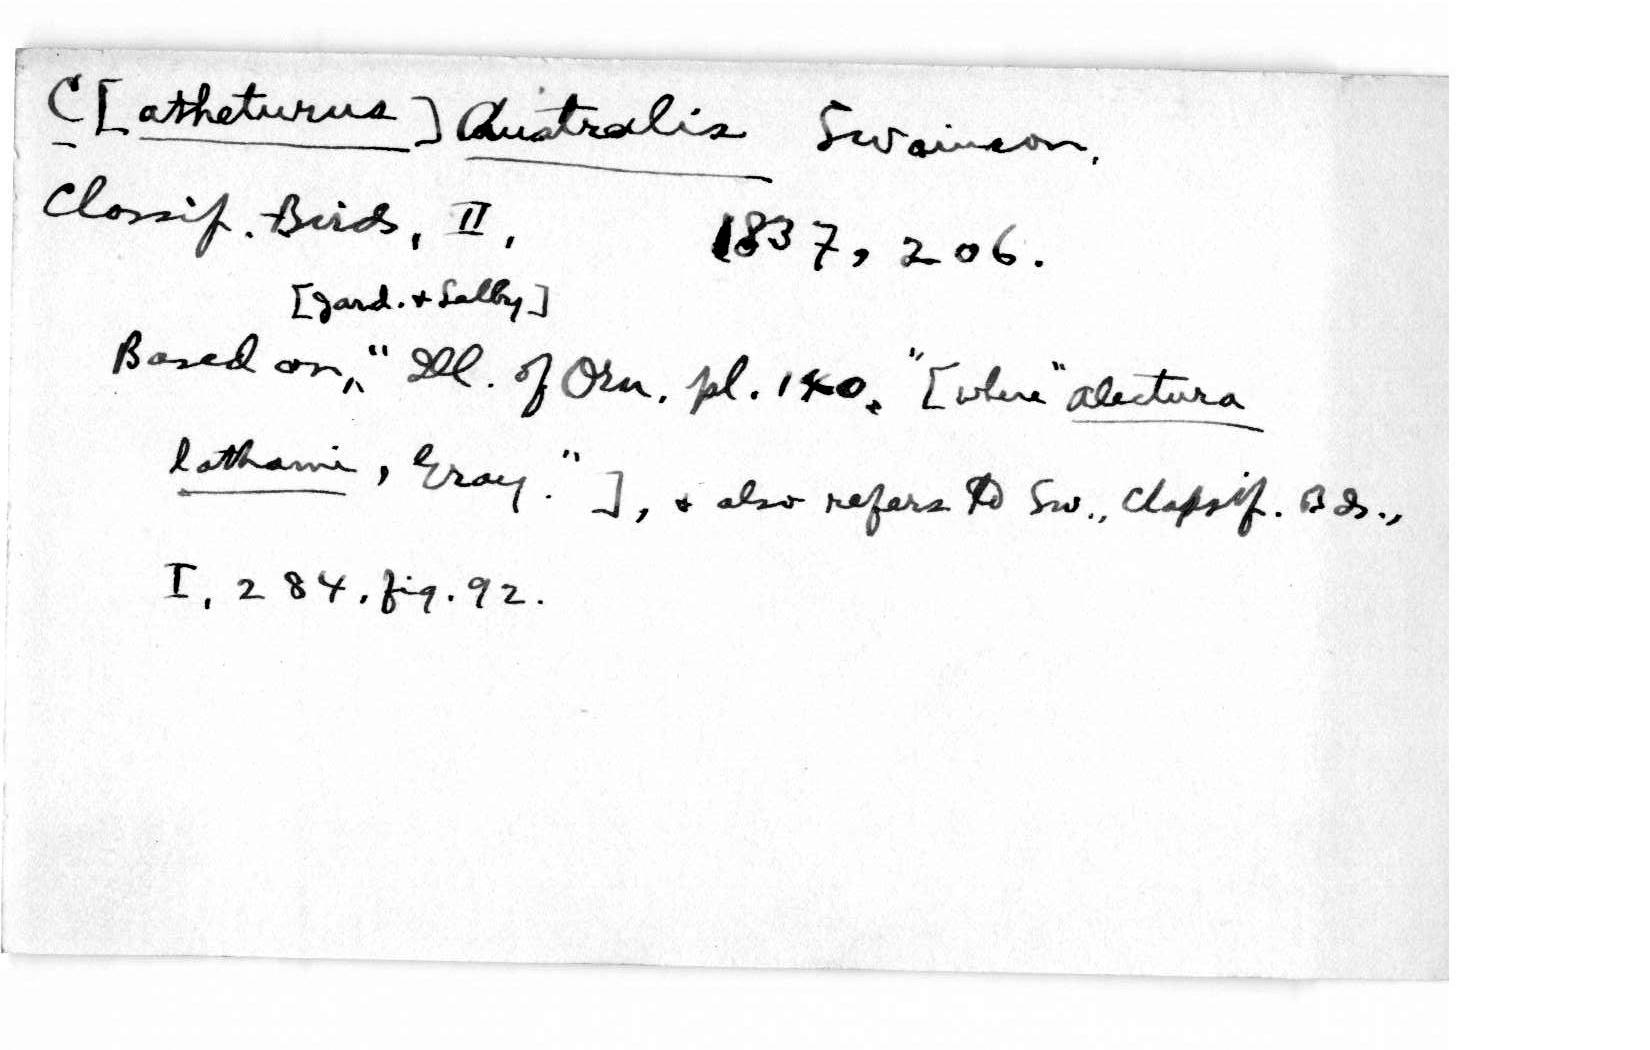 C[atheturus] Australis Swainson,
Classif. Birds, II, 1837, 206.
[Jard. + Selby]
Based on, "Ill. of Orn. pl. 140." [where "Alectura
lathami, Gray."], + also refers to Sw., Classif. Bds.,
I, 284, fig. 92.